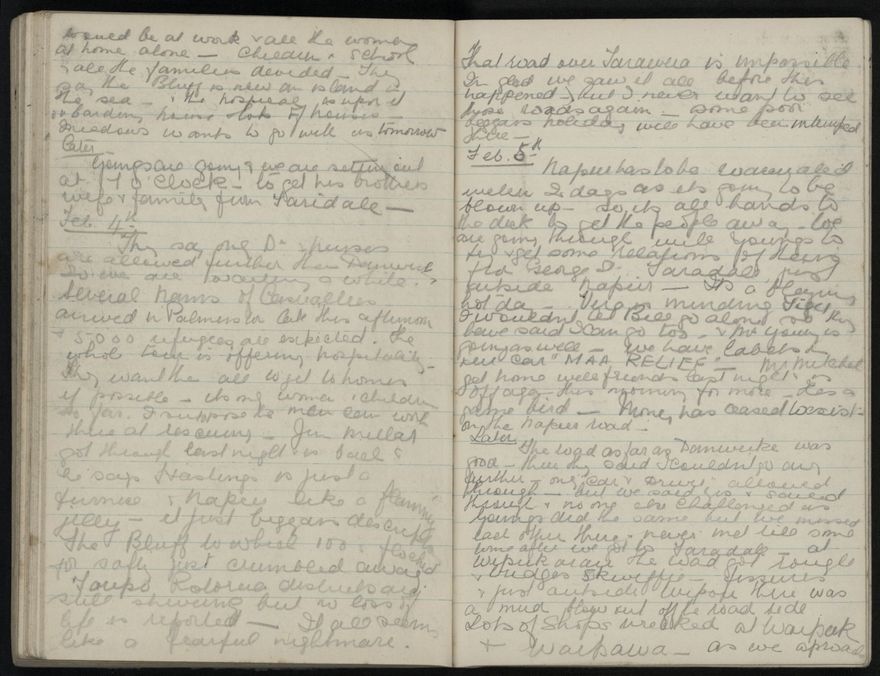 would be at work & all the women
at home alone — Children & School
& all the families divided — They
say the Bluff is now an island in
the sea — & the hospital is upon it
& boarding house & lots of houses —
Meadows wants to go with us tomorrow
Later
Youngs are going & we are setting out
at 7 o'clock — to get his brothers
wife & family from Taradale —
Feb. 4th
They say only Drs & nurses
are allowed further than Danevirk
So we are waiting a while.
Several trains of Casualties
arrived in Palmerston late this afternoon
& 5,000 refugees are expected. The
whole town is offering hospitality
They want the all to get to homes
if possible — its only women & children
so far. I suppose the men can work
there at rescuing — Jim Millar
got through last night is back &
he says Hastings is just a
furnace & Napier like a flaming
jelly — it just beggars description
The Bluff to which 100s flocked
for safety just crumbled away
Taupo Rotorua districts are
still shivering but no loss of
life is reported — It all seems
like a fearful nightmare.
That road over Tarawera is impossible
I'm glad we saw it all before this
happened, but I never want to see
those roads again — some poor
beggars holiday will have been interrupted
there —
Feb. 5th
Napier has to be evacuated
within 2 days as its going to be
blown up — so its all hands to
the deck to get the people away. We
are going through with Youngs to
try & get some relations of theirs
from George St. Taradale just
outside Napier — It's a flaming
hot day — is minding
I wouldn't let Bill go alone so they
have said I can go too — & Mr Young is
going as well — We have labels on
our car "MAA RELIEF" — Mr Mitchel
got home with friends last night & is
off again this morning for more — He's a
game bird — Money has ceased to exist
on the Napier road.
Later
The road as far as Danevirke was
good — there they said I couldn't go any
further — only "car & driver" allowed
through — but we said & sailed
through & no one else challenged us
Youngs did the same but we missed
each other there & never met till some
time after we got to Taradale — at
Waipukurau the road got rough
& bridges skewiffe — fissures
& just outside Waipuk there was
a mud blow out off the road side
Lots of shops wrecked at Waipuk
& Waipawa — as we aproach